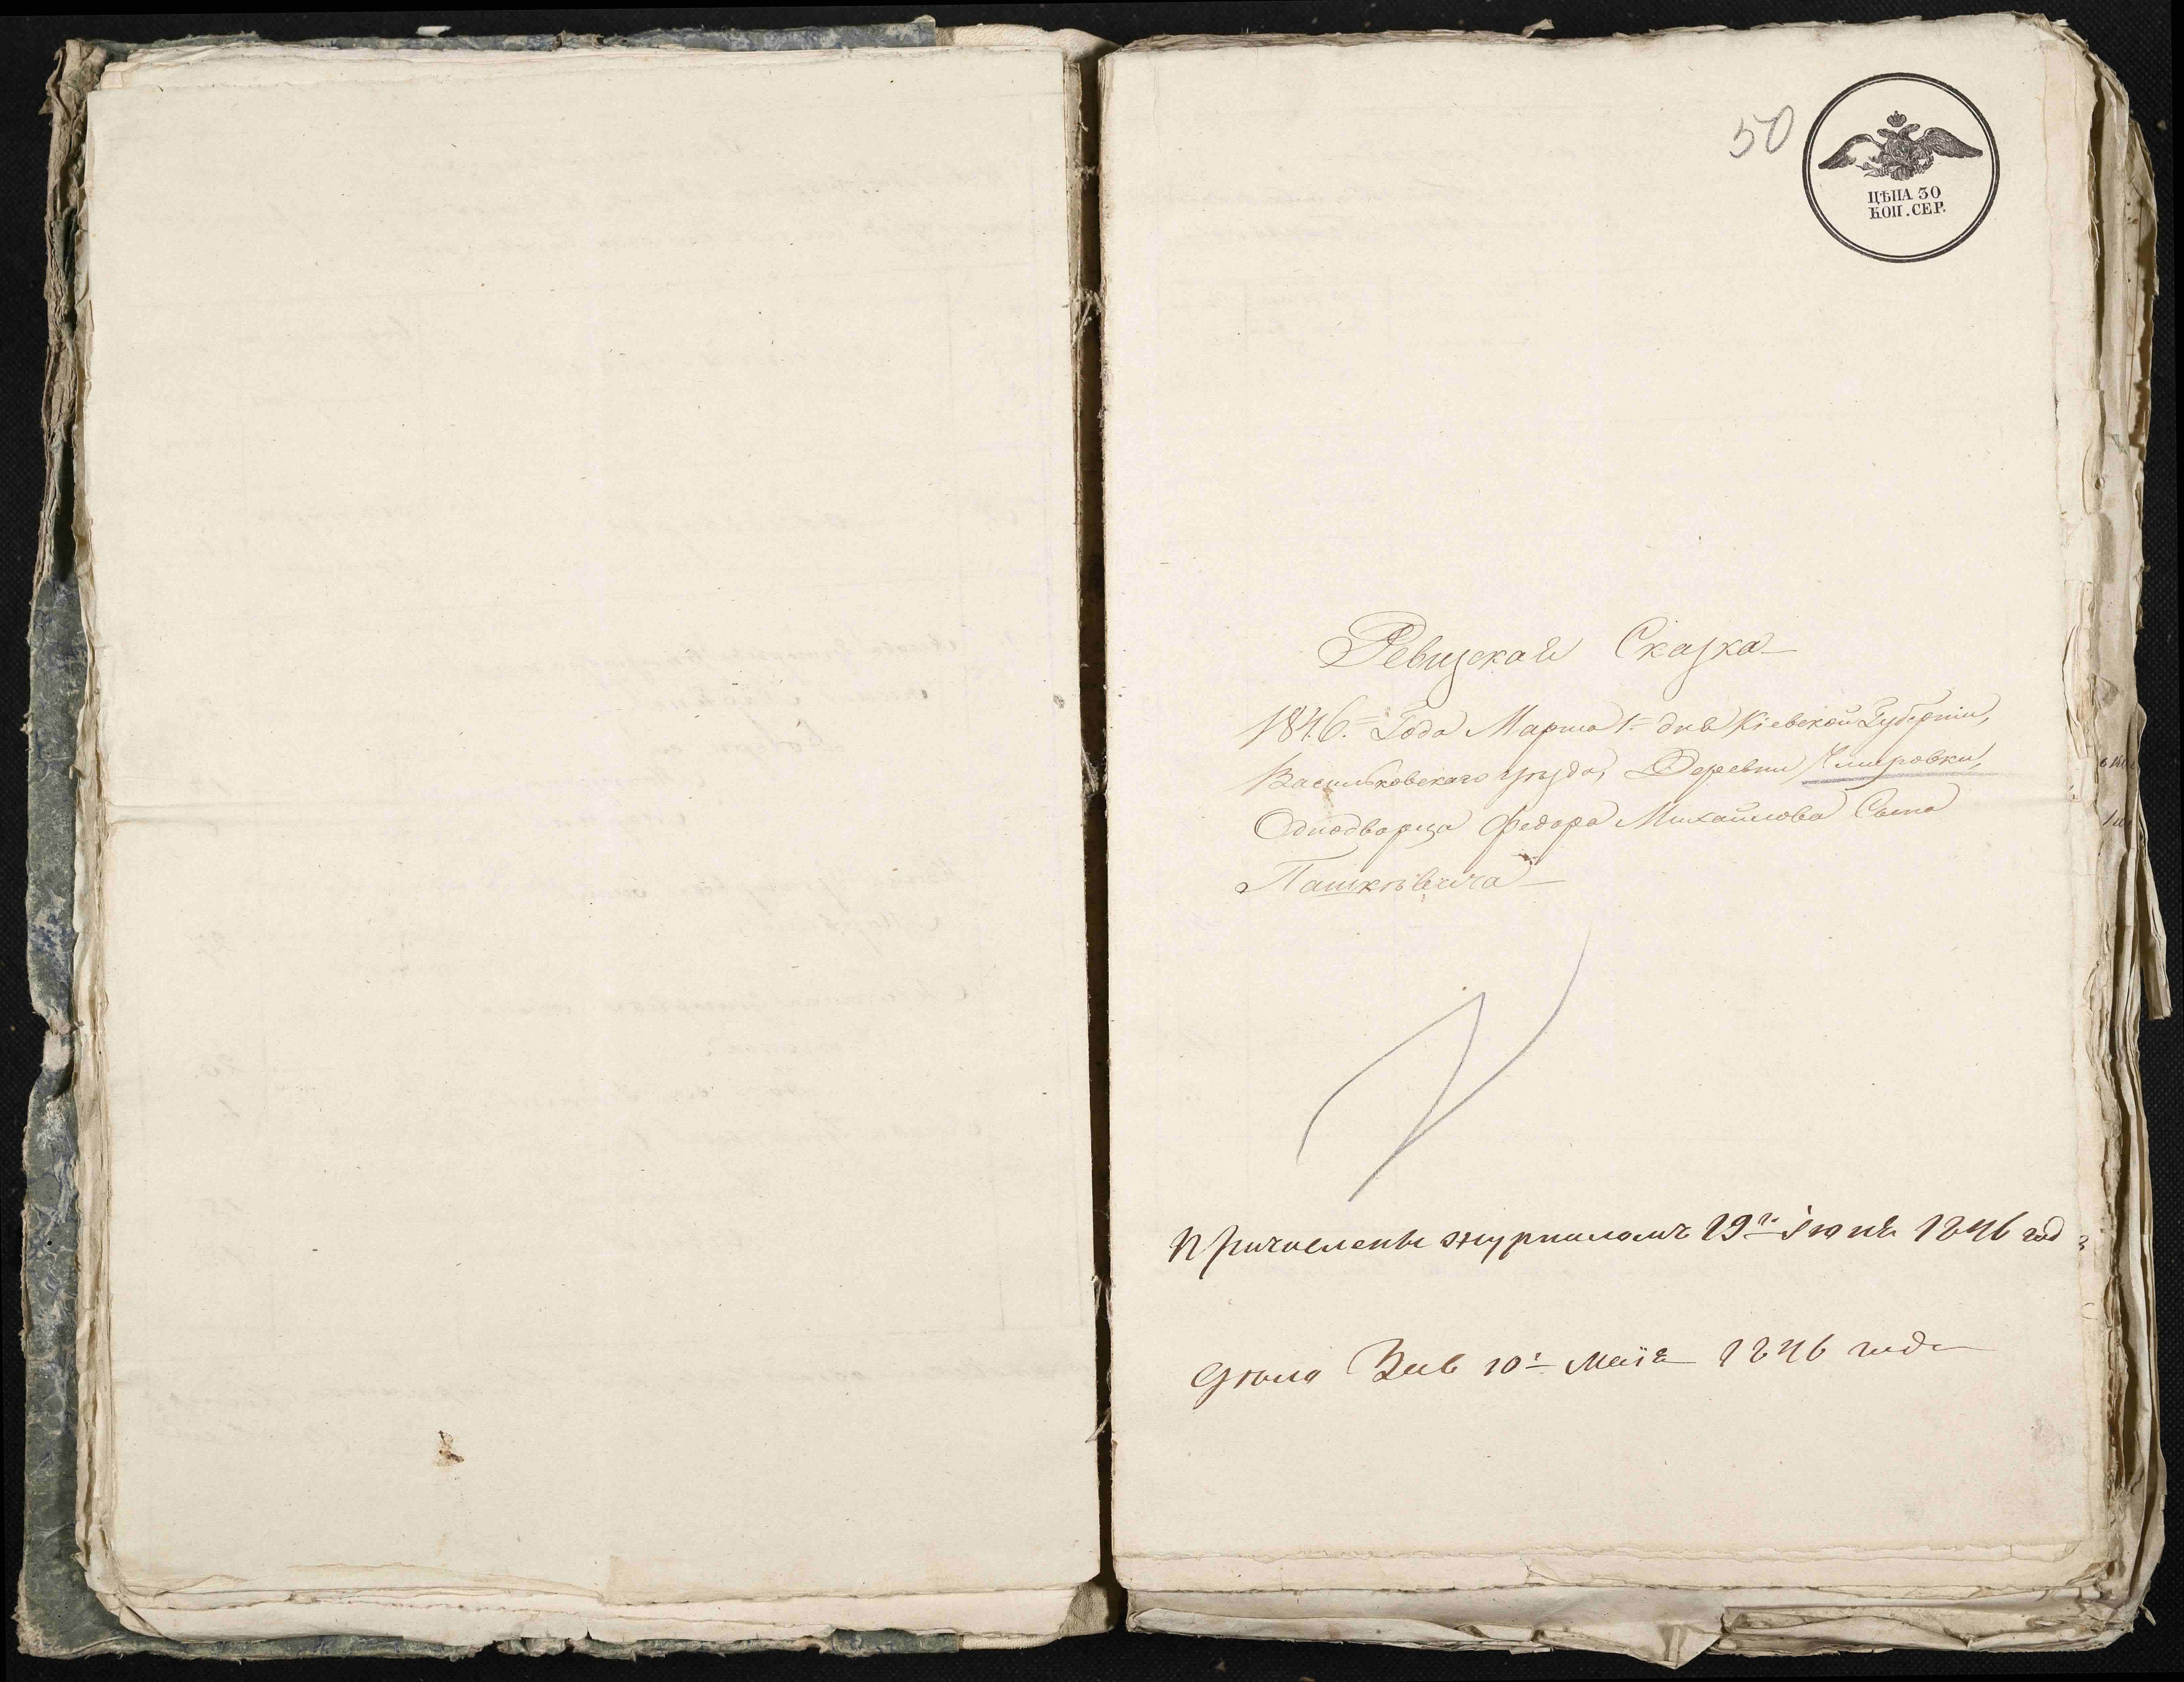 50
ЦѢНА 30
КОП. СЕР.
Ревизская Сказка
1846. Года Марта 1. дня Кіевской Губерніи,
Васильковскаго уѣзда, Деревни
Однодворца Федора Михайлова Сына
Пашкѣвича
Причислены журналомъ 19го Іюня 1846 год
10. Маія 1846 года